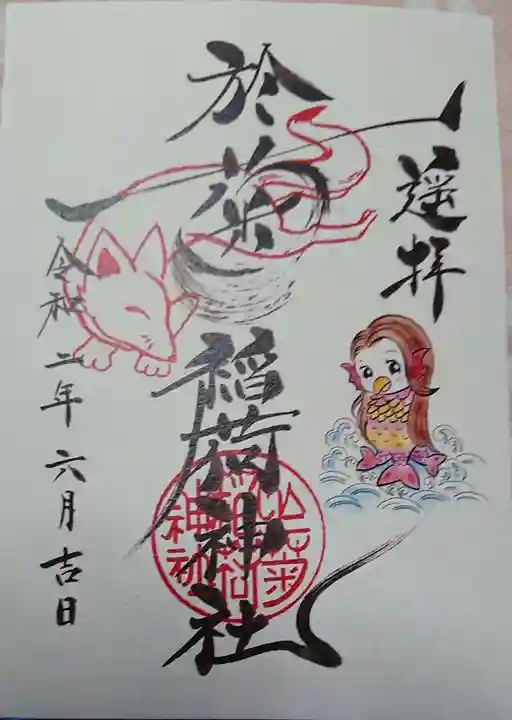 遥拝
於菊
稲荷神社
於菊
稲荷
神社
令和二年六月吉日